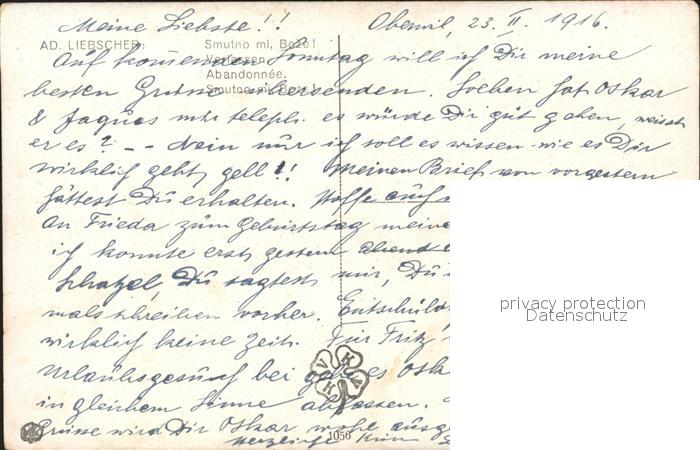 Meine Liebste!! Oberwil, 23. II. 1916.
AD. LIEBSCHER: Smutno mi, Boże!
Verlassen.
Abandonnée.
Smutno mi, Bože!
Auf kommenden Sonntag will ich Dir meine
besten Grüsse übersenden. Soeben hat Oskar
& Jaques mir teleph. es würde Dir gut gehen, weisst
er es? -- Nein nur ich soll es wissen wie es Dir
wirklich geht, gell!! Meinen Brief von vorgestern
hättest Du erhalten. Hoffe auch
An Frieda zum Geburtstag meine
ich konnte erst gestern Abend
Schatzel, Du sagtest mir, Du
mal schreiben vorher. Entschuld
wirklich keine Zeit. Für Fritz
Urlaubsgesuch bei es Osk
in gleichem Sinne abfassen.
Grüsse wird Dir Oskar wohl ausg
herzliche
1056
K V K V
privacy protection
Datenschutz